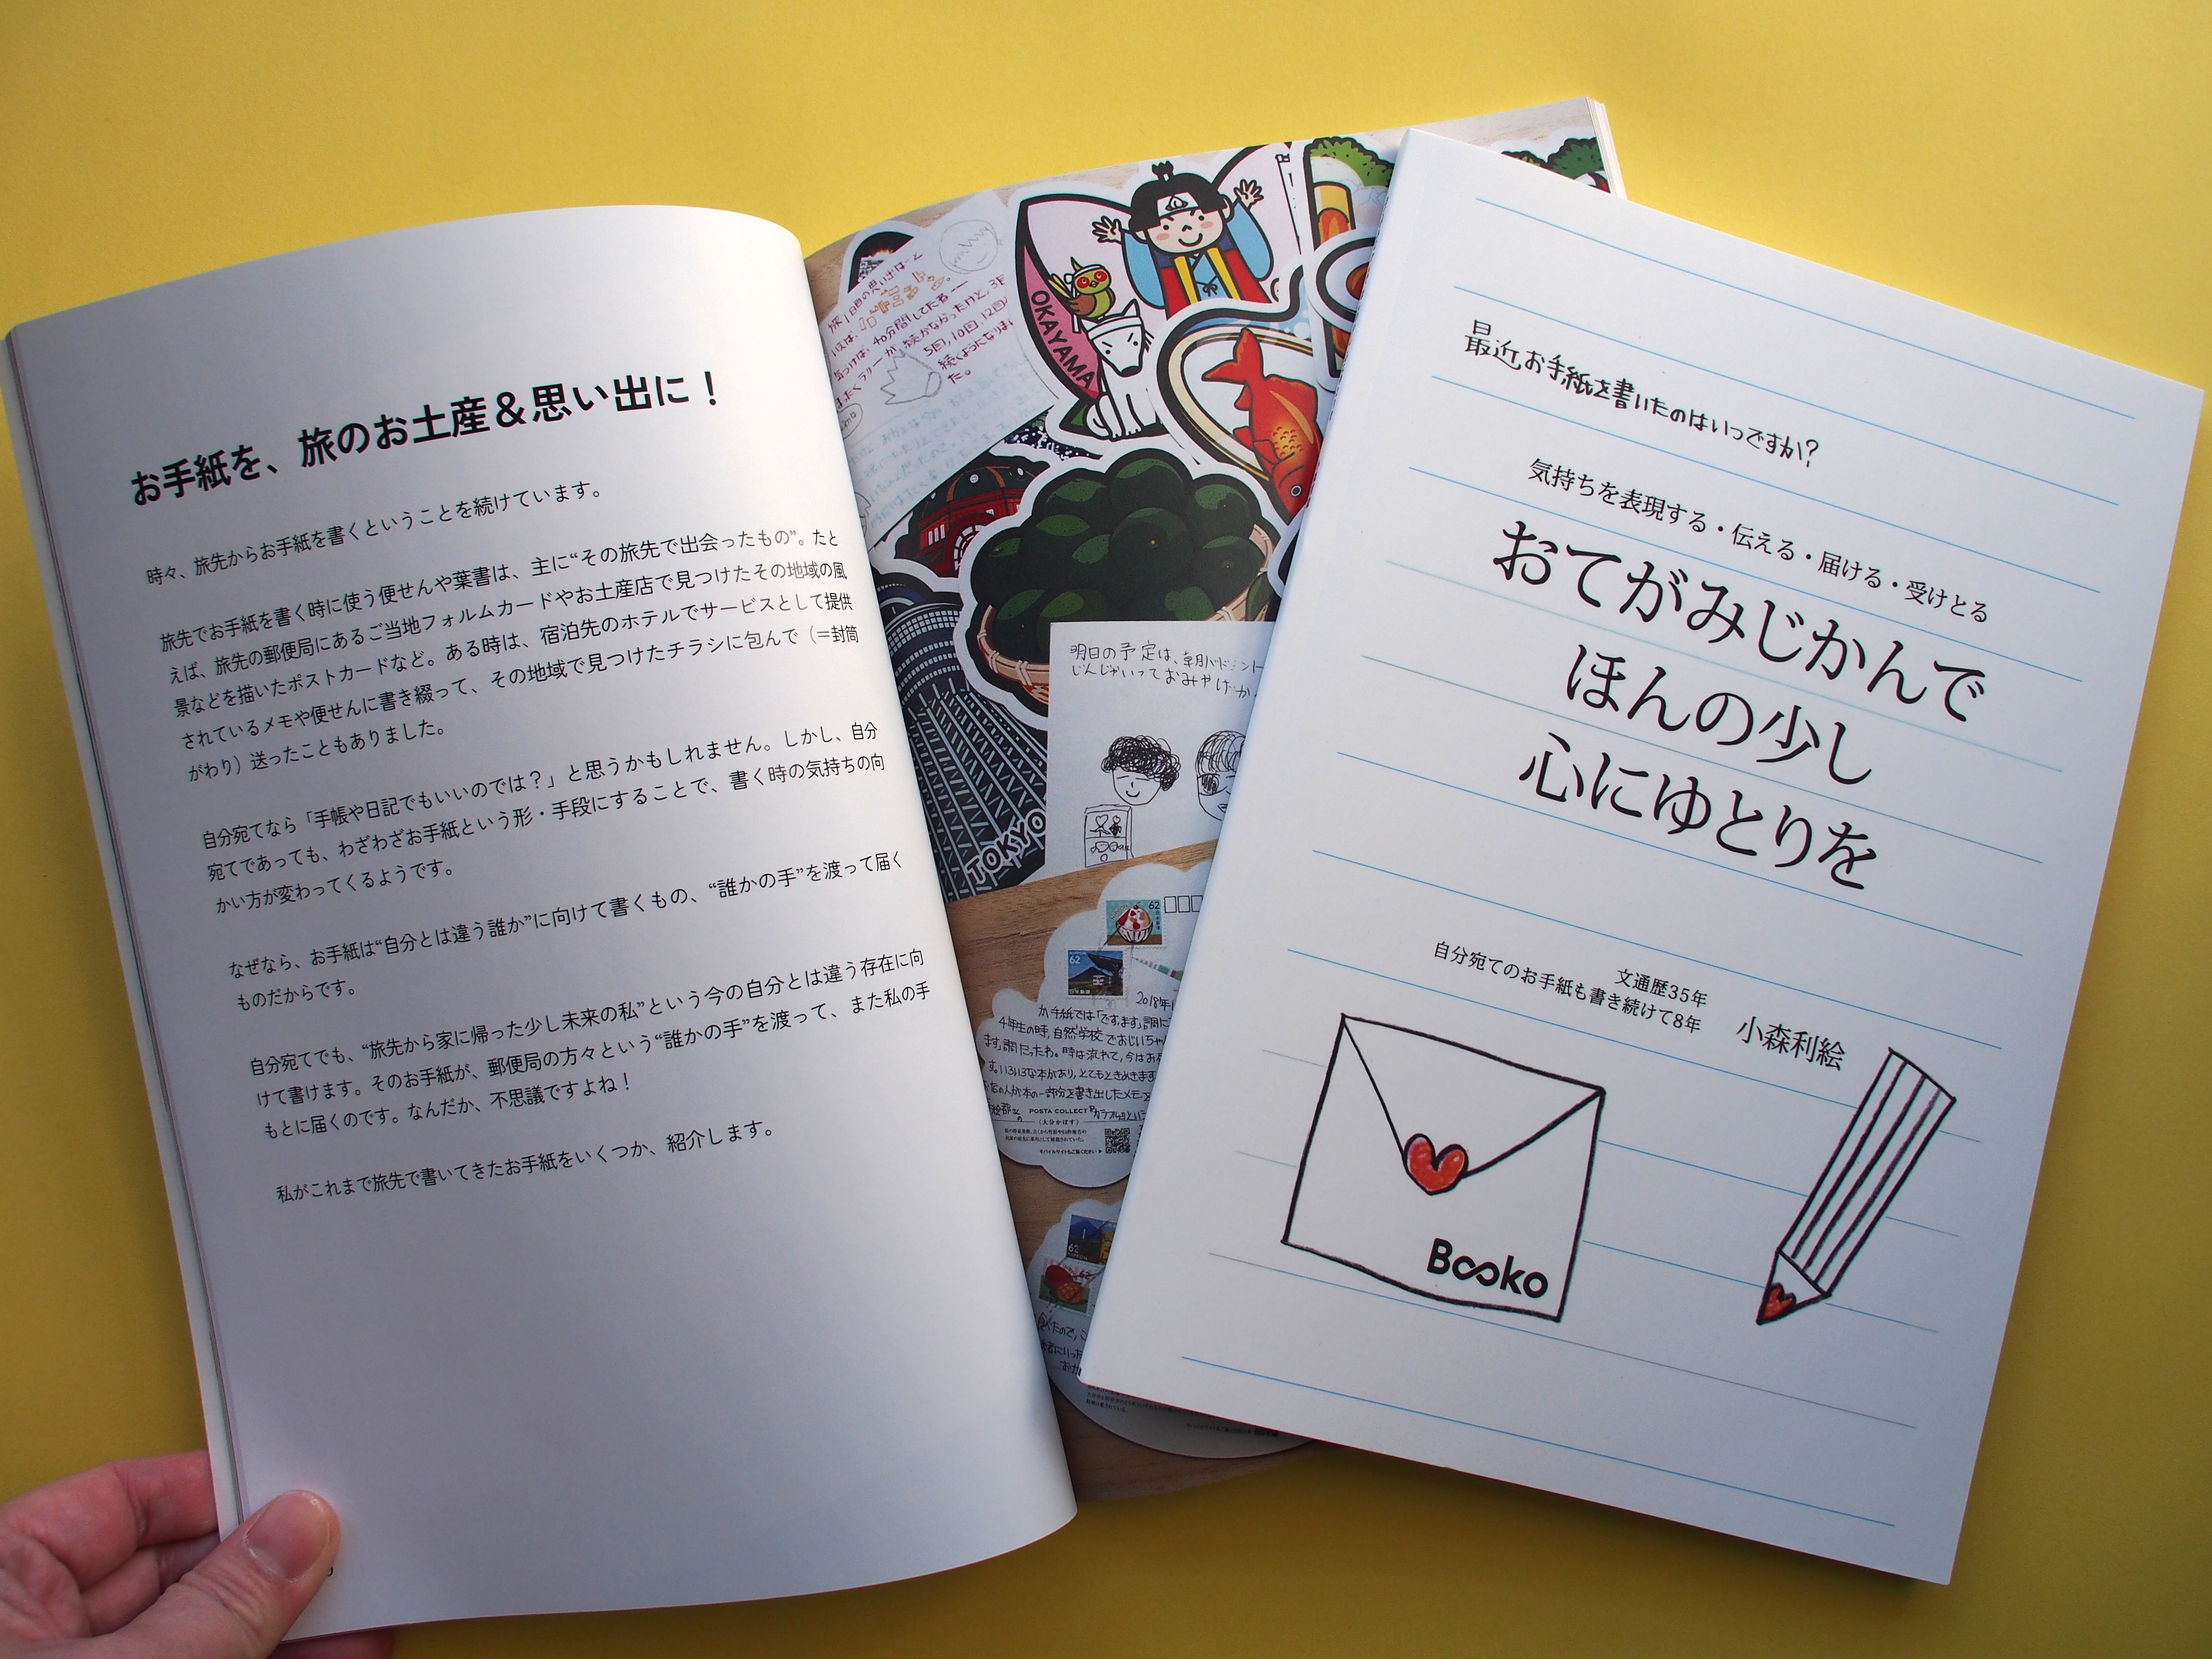 お手紙を、旅のお土産＆思い出に！
時々、旅先からお手紙を書くということを続けています。
旅先でお手紙を書く時に使う便せんや葉書は、主に“その旅先で出会ったもの”。たと
えば、旅先の郵便局にあるご当地フォルムカードやお土産店で見つけたその地域の風
景などを描いたポストカードなど。ある時は、宿泊先のホテルでサービスとして提供
されているメモや便せんに書き綴って、その地域で見つけたチラシに包んで（＝封筒
がわり）送ったこともありました。
自分宛てなら「手帳や日記でもいいのでは？」と思うかもしれません。しかし、自分
宛てであっても、わざわざお手紙という形・手段にすることで、書く時の気持ちの向
かい方が変わってくるようです。
なぜなら、お手紙は“自分とは違う誰か”に向けて書くもの、“誰かの手”を渡って届く
ものだからです。
自分宛てでも、“旅先から家に帰った少し未来の私”という今の自分とは違う存在に向
けて書けます。そのお手紙が、郵便局の方々という“誰かの手”を渡って、また私の手
もとに届くのです。なんだか、不思議ですよね！
私がこれまで旅先で書いてきたお手紙をいくつか、紹介します。
OKAYAMA
5回,10回,12回
た。
TOKYO
明日の予定は、
62
62
2018年1
4年生の時,自然学校でおじいちゃ
POSTA COLLECT
62
最近お手紙を書いたのはいつですか?
気持ちを表現する・伝える・届ける・受けとる
おてがみじかんで
ほんの少し
心にゆとりを
文通歴35年
自分宛てのお手紙も書き続けて8年
小森利絵
Booko